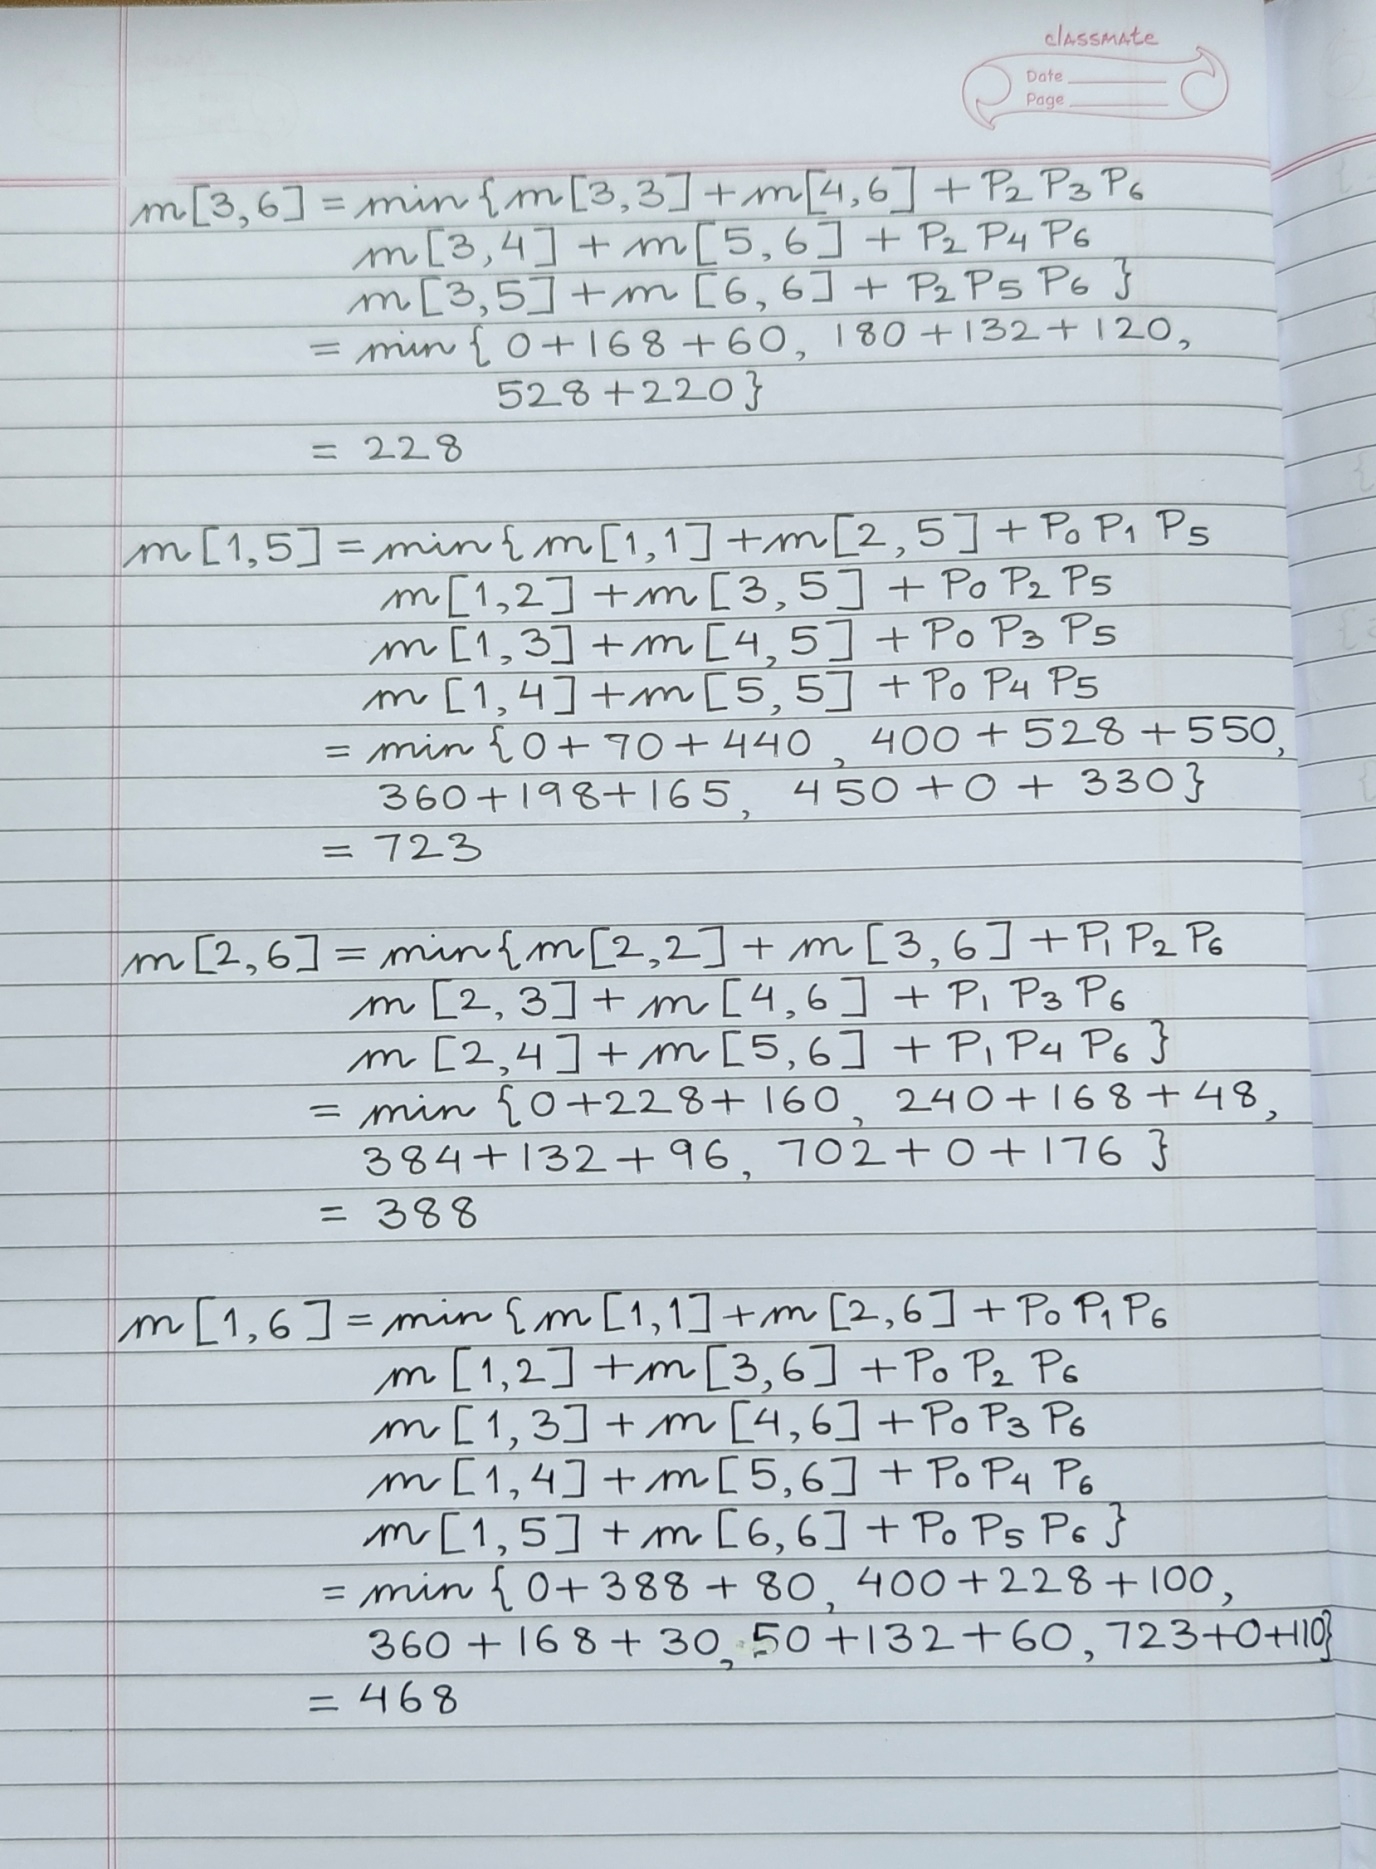 classmate
Date
Page
m[3,6] = min{m[3,3]+m[4,6]+P2 P3 P6
m[3,4] + m[5,6] + P2 P4 P6
m[3,5] + m[6,6] + P2 P5 P6 }
= min{ 0+168+60, 180+132+120,
528+220}
= 228
m[1,5] = min{m[1,1]+m[2,5]+P0 P1 P5
m[1,2] + m[3,5] + P0 P2 P5
m[1,3] + m[4,5] + P0 P3 P5
m[1,4] + m[5,5] + P0 P4 P5
= min{0+70+440, 400+528+550,
360+198+165, 450+0+330}
= 723
m[2,6] = min{m[2,2]+m[3,6]+P1 P2 P6
m[2,3] + m[4,6] + P1 P3 P6
m[2,4] + m[5,6] + P1 P4 P6 }
= min {0+228+160, 240+168+48,
384+132+96, 702+0+176 }
= 388
m[1,6] = min{m[1,1]+m[2,6]+P0 P1 P6
m[1,2] + m[3,6] + P0 P2 P6
m[1,3] + m[4,6] + P0 P3 P6
m[1,4] + m[5,6] + P0 P4 P6
m[1,5] + m[6,6] + P0 P5 P6 }
= min { 0+388+80, 400+228+100,
360+168+30, 50+132+60, 723+0+110}
= 468